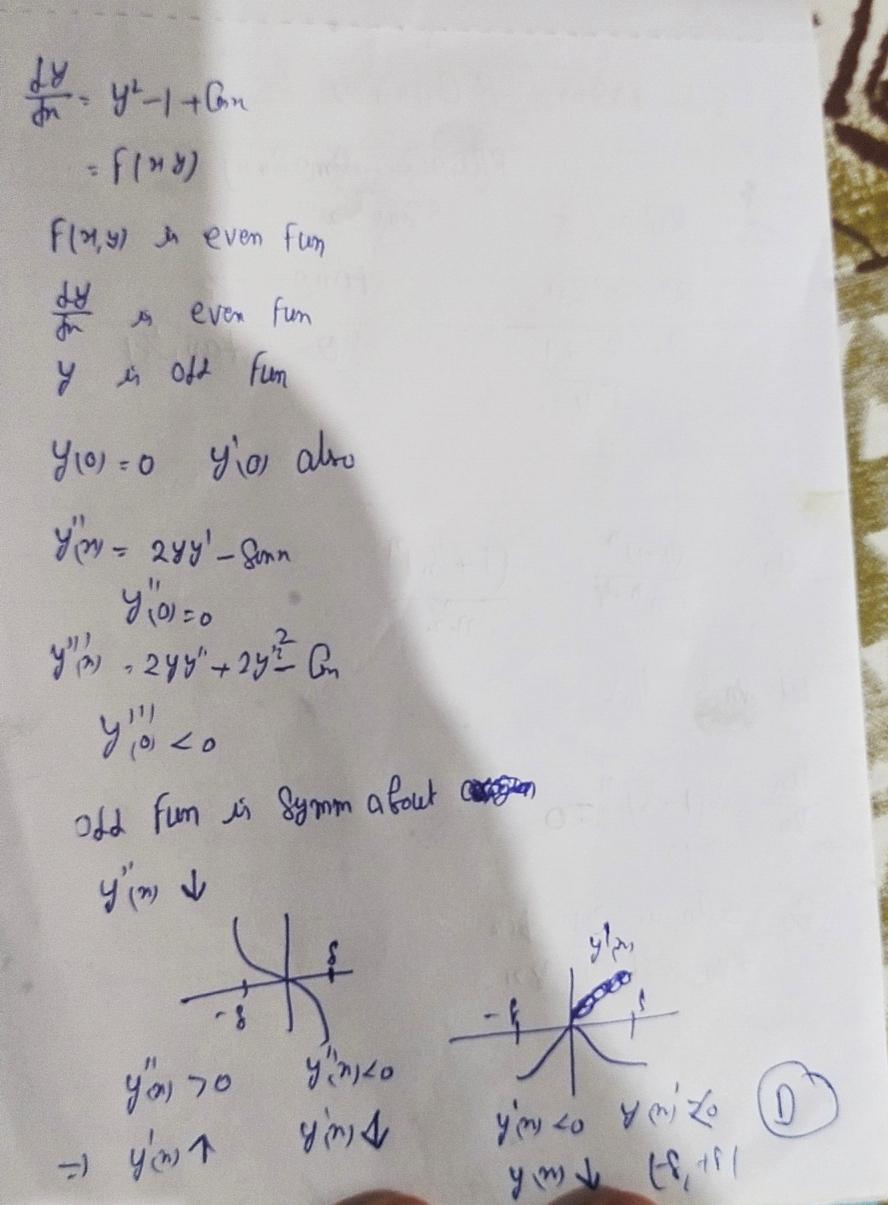 dy/dx = y²-1 + Cosx
= f(x y)
F(x,y) is even fun
dy/dx is even fun
y is odd fun
y(0) = 0 y'(0) also
y''(x) = 2yy' - Sinx
y''(0) = 0
y'''(x) = 2yy'' + 2y'² - Cosx
y'''(0) < 0
odd fun is Symm about
y''(x) ↓
-δ δ
y'(x)
-δ δ
y''(x) > 0 y''(x) < 0
y'(x) ↑ y'(x) ↓
y'(x) < 0
y(x) ↓ (-δ, δ)
D